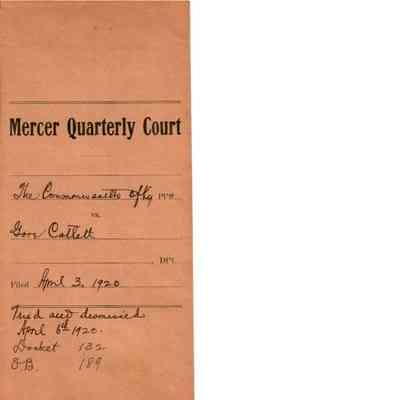 Mercer Quarterly Court
The Commonwealth of Ky PFF.
vs.
Catlett
, DFT.
Filed April 3, 1920
Tried and dismissed
April 6th 1920.
Docket 132
O.B. 189